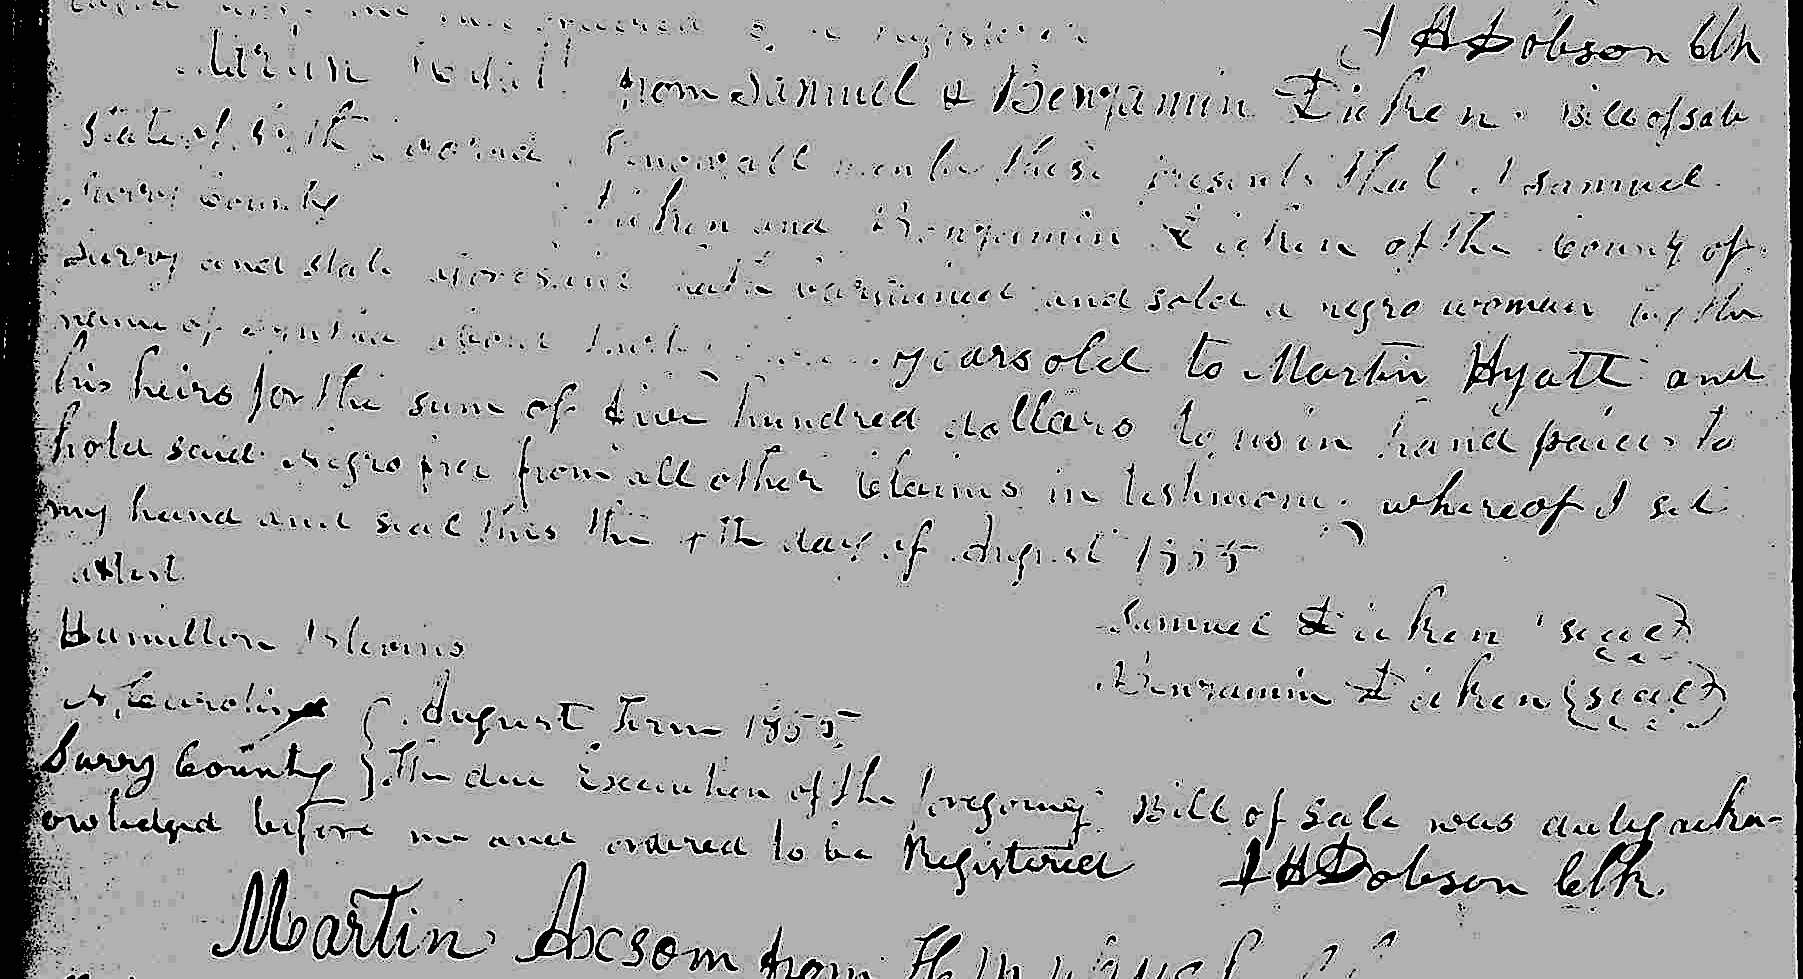 me and ordered to be registered
J H Dobson Clk
Martin Hyatt from Samuel & Benjamin Dicken Bill of sale
State of North Carolina Know all men by these presents that I Samuel
Surry County Dicken and Benjamin Dicken of the County of
Surry and state aforesaid hath bargained and sold a negro woman by the
name of about years old to Martin Hyatt and
his heirs for the sum of five hundred dollars to us in hand paid to
hold said Negro free from all other claims in testimony whereof I set
my hand and seal this the 4th day of August 1855
attest
Hamilton Blevins
Samuel Dicken (seal)
Benjamin Dicken (seal)
N. Carolina August Term 1855
Surry County The due Execution of the foregoing Bill of Sale was duly ackn-
owledged before me and ordered to be Registered J H Dobson Clk
Martin Axsom from